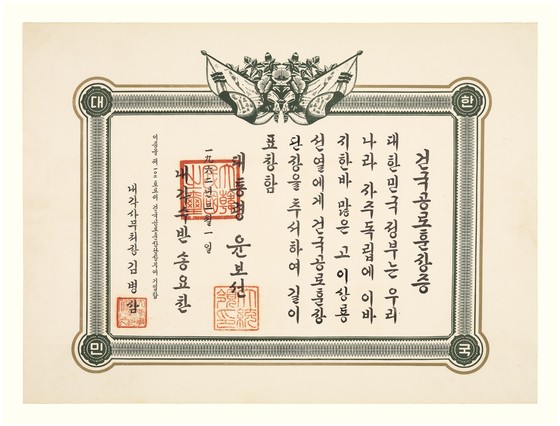 대 한
민 국
건국공로훈장증
대한민국 정부는 우리
나라 자주독립에 이바
지한바 많은 고 이상룡
선열에게 건국공로훈장
단장을 추서하여 길이
표창함
대통령 윤보선
大統領印
一九六二년 三월 一일
내각수반 송요찬
건국공로훈장부에 기입함
내각사무처장 김병삼